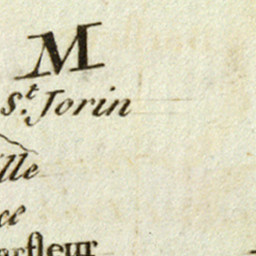 M
S.t Jorin
lle
ce
arfleur